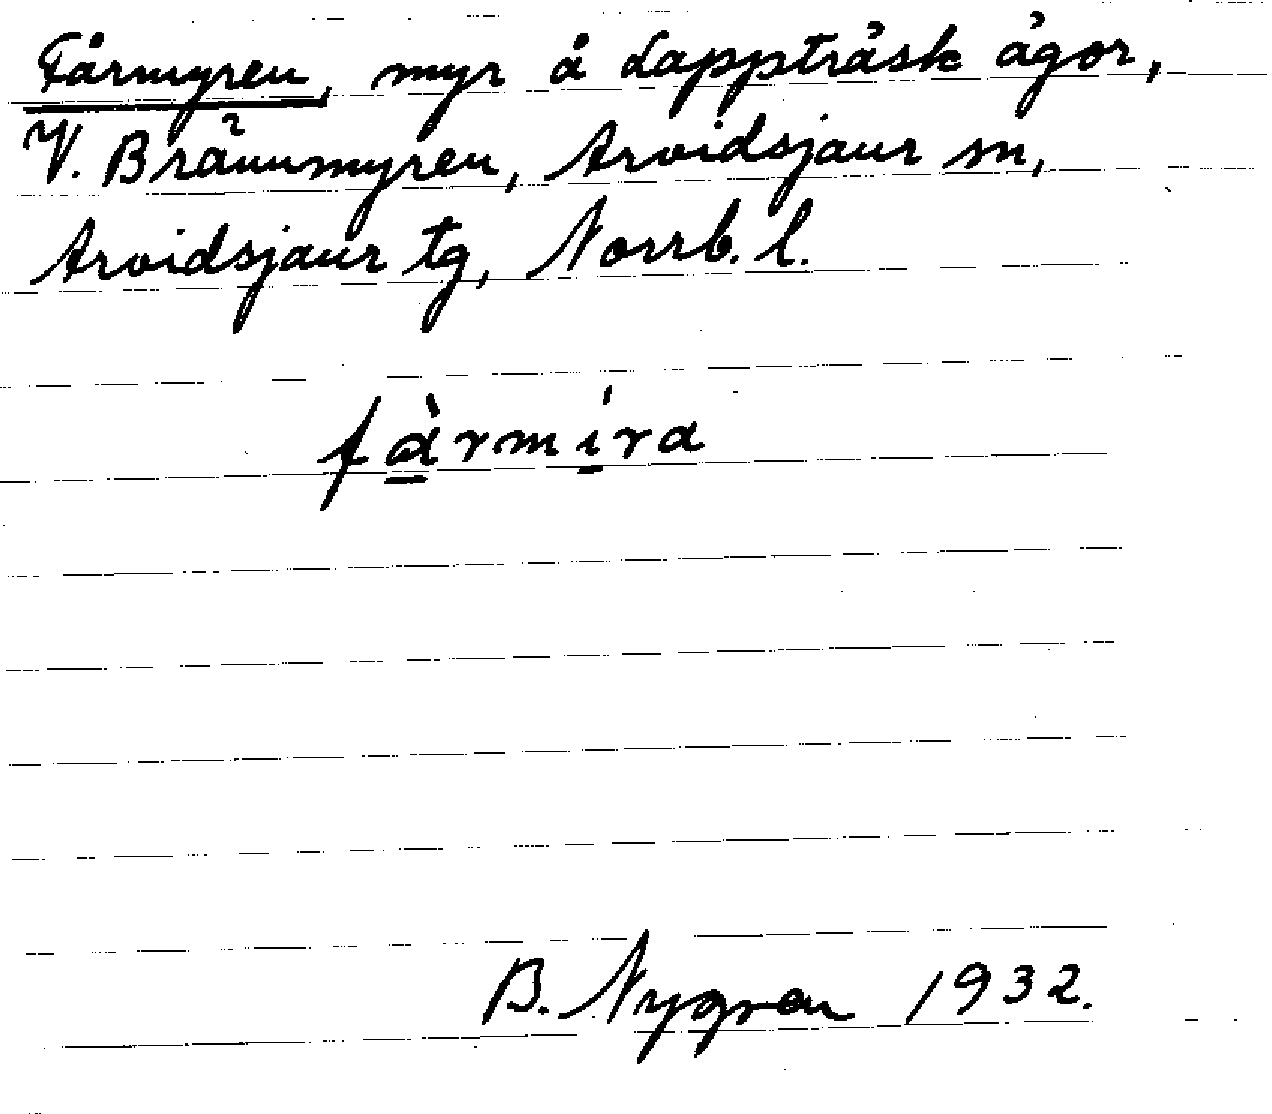 Fårmyren, myr å Lappträsk ägor,
V. Brännmyren, Arvidsjaur sn,
Arvidsjaur tg, Norrb. l.
fàrmíra
B. Nygren 1932.